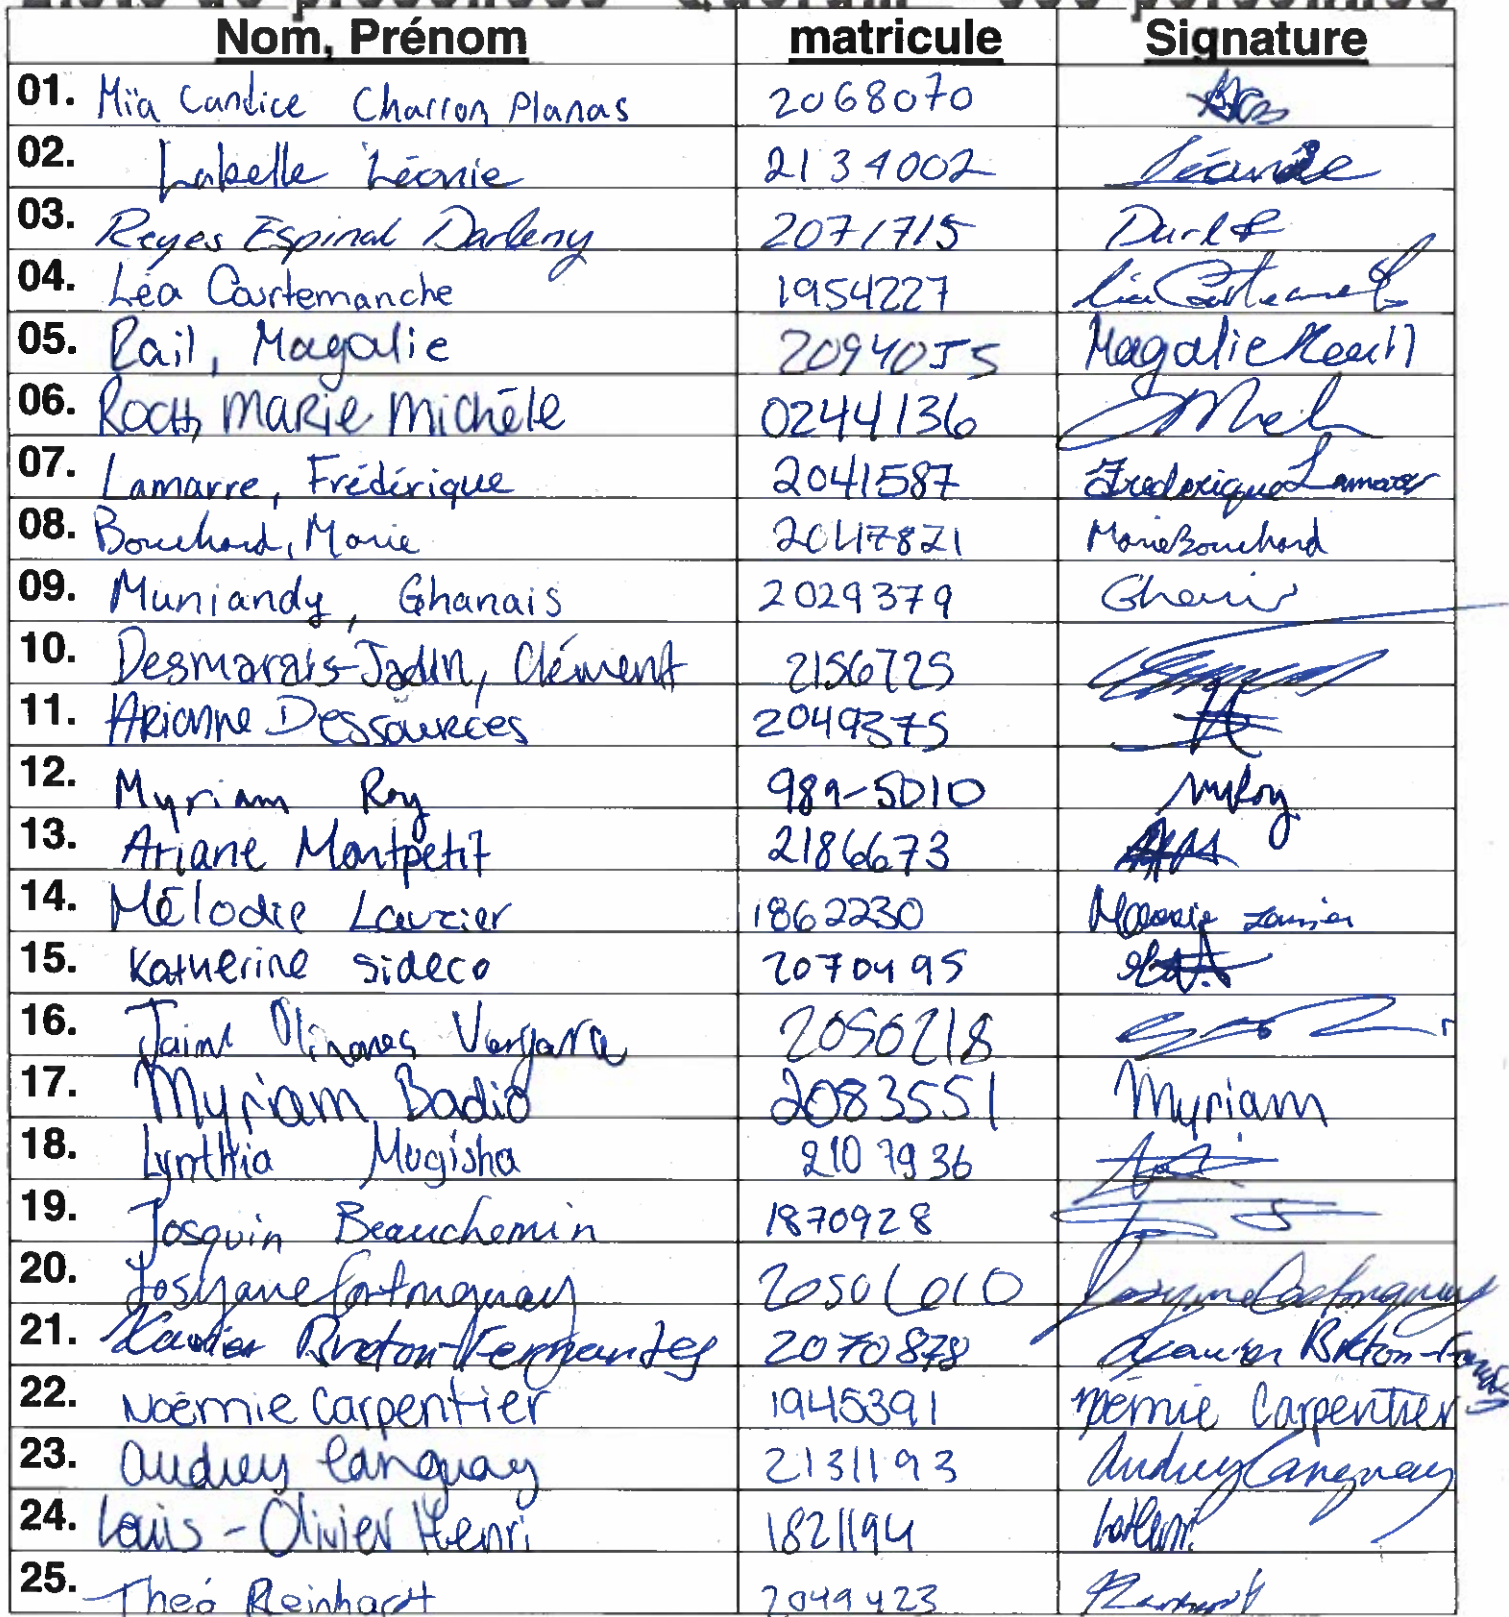 Liste de présences - Quorum - 000 personnes
Nom, Prénom matricule Signature
01. Mïa Candice Charron Planas 2068070
02. Labelle Léonie 2134002 Léonie
03. Reyes Espinal Darleny 2071715 Darl
04. Léa Courtemanche 1954227 Léa Courtemanche
05. Rail, Magalie 2094055 Magalie Rail
06. Roch, Marie Michèle 0244136
07. Lamarre, Frédérique 2041587 Frédérique Lamarre
08. Bouchard, Marie 2047821 Marie Bouchard
09. Muniandy, Ghanais 2029379 Ghanais
10. Desmarais-Jadin, Clément 2156725
11. Arianne Dessources 2049375
12. Myriam Roy 989-5010 MRoy
13. Ariane Montpetit 2186673
14. Mélodie Lauzier 1862230 Mélodie Lauzier
15. Katherine Sideco 2070495
16. Jaime Olivares Vergara 2050218
17. Myriam Badio 2083551 Myriam
18. Lynthia Mugisha 2107936
19. Josquin Beauchemin 1870928
20. Josyane Castonguay 20506010 Josyane Castonguay
21. Xavier Breton-Fernandes 2070878 Xavier Breton-Fernandes
22. Noémie Carpentier 1945391 Noémie Carpentier
23. Audrey Tanguay 2131193 Audrey Tanguay
24. Louis-Olivier Henri 1821194
25. Théo Reinhardt 2049423 Reinhardt